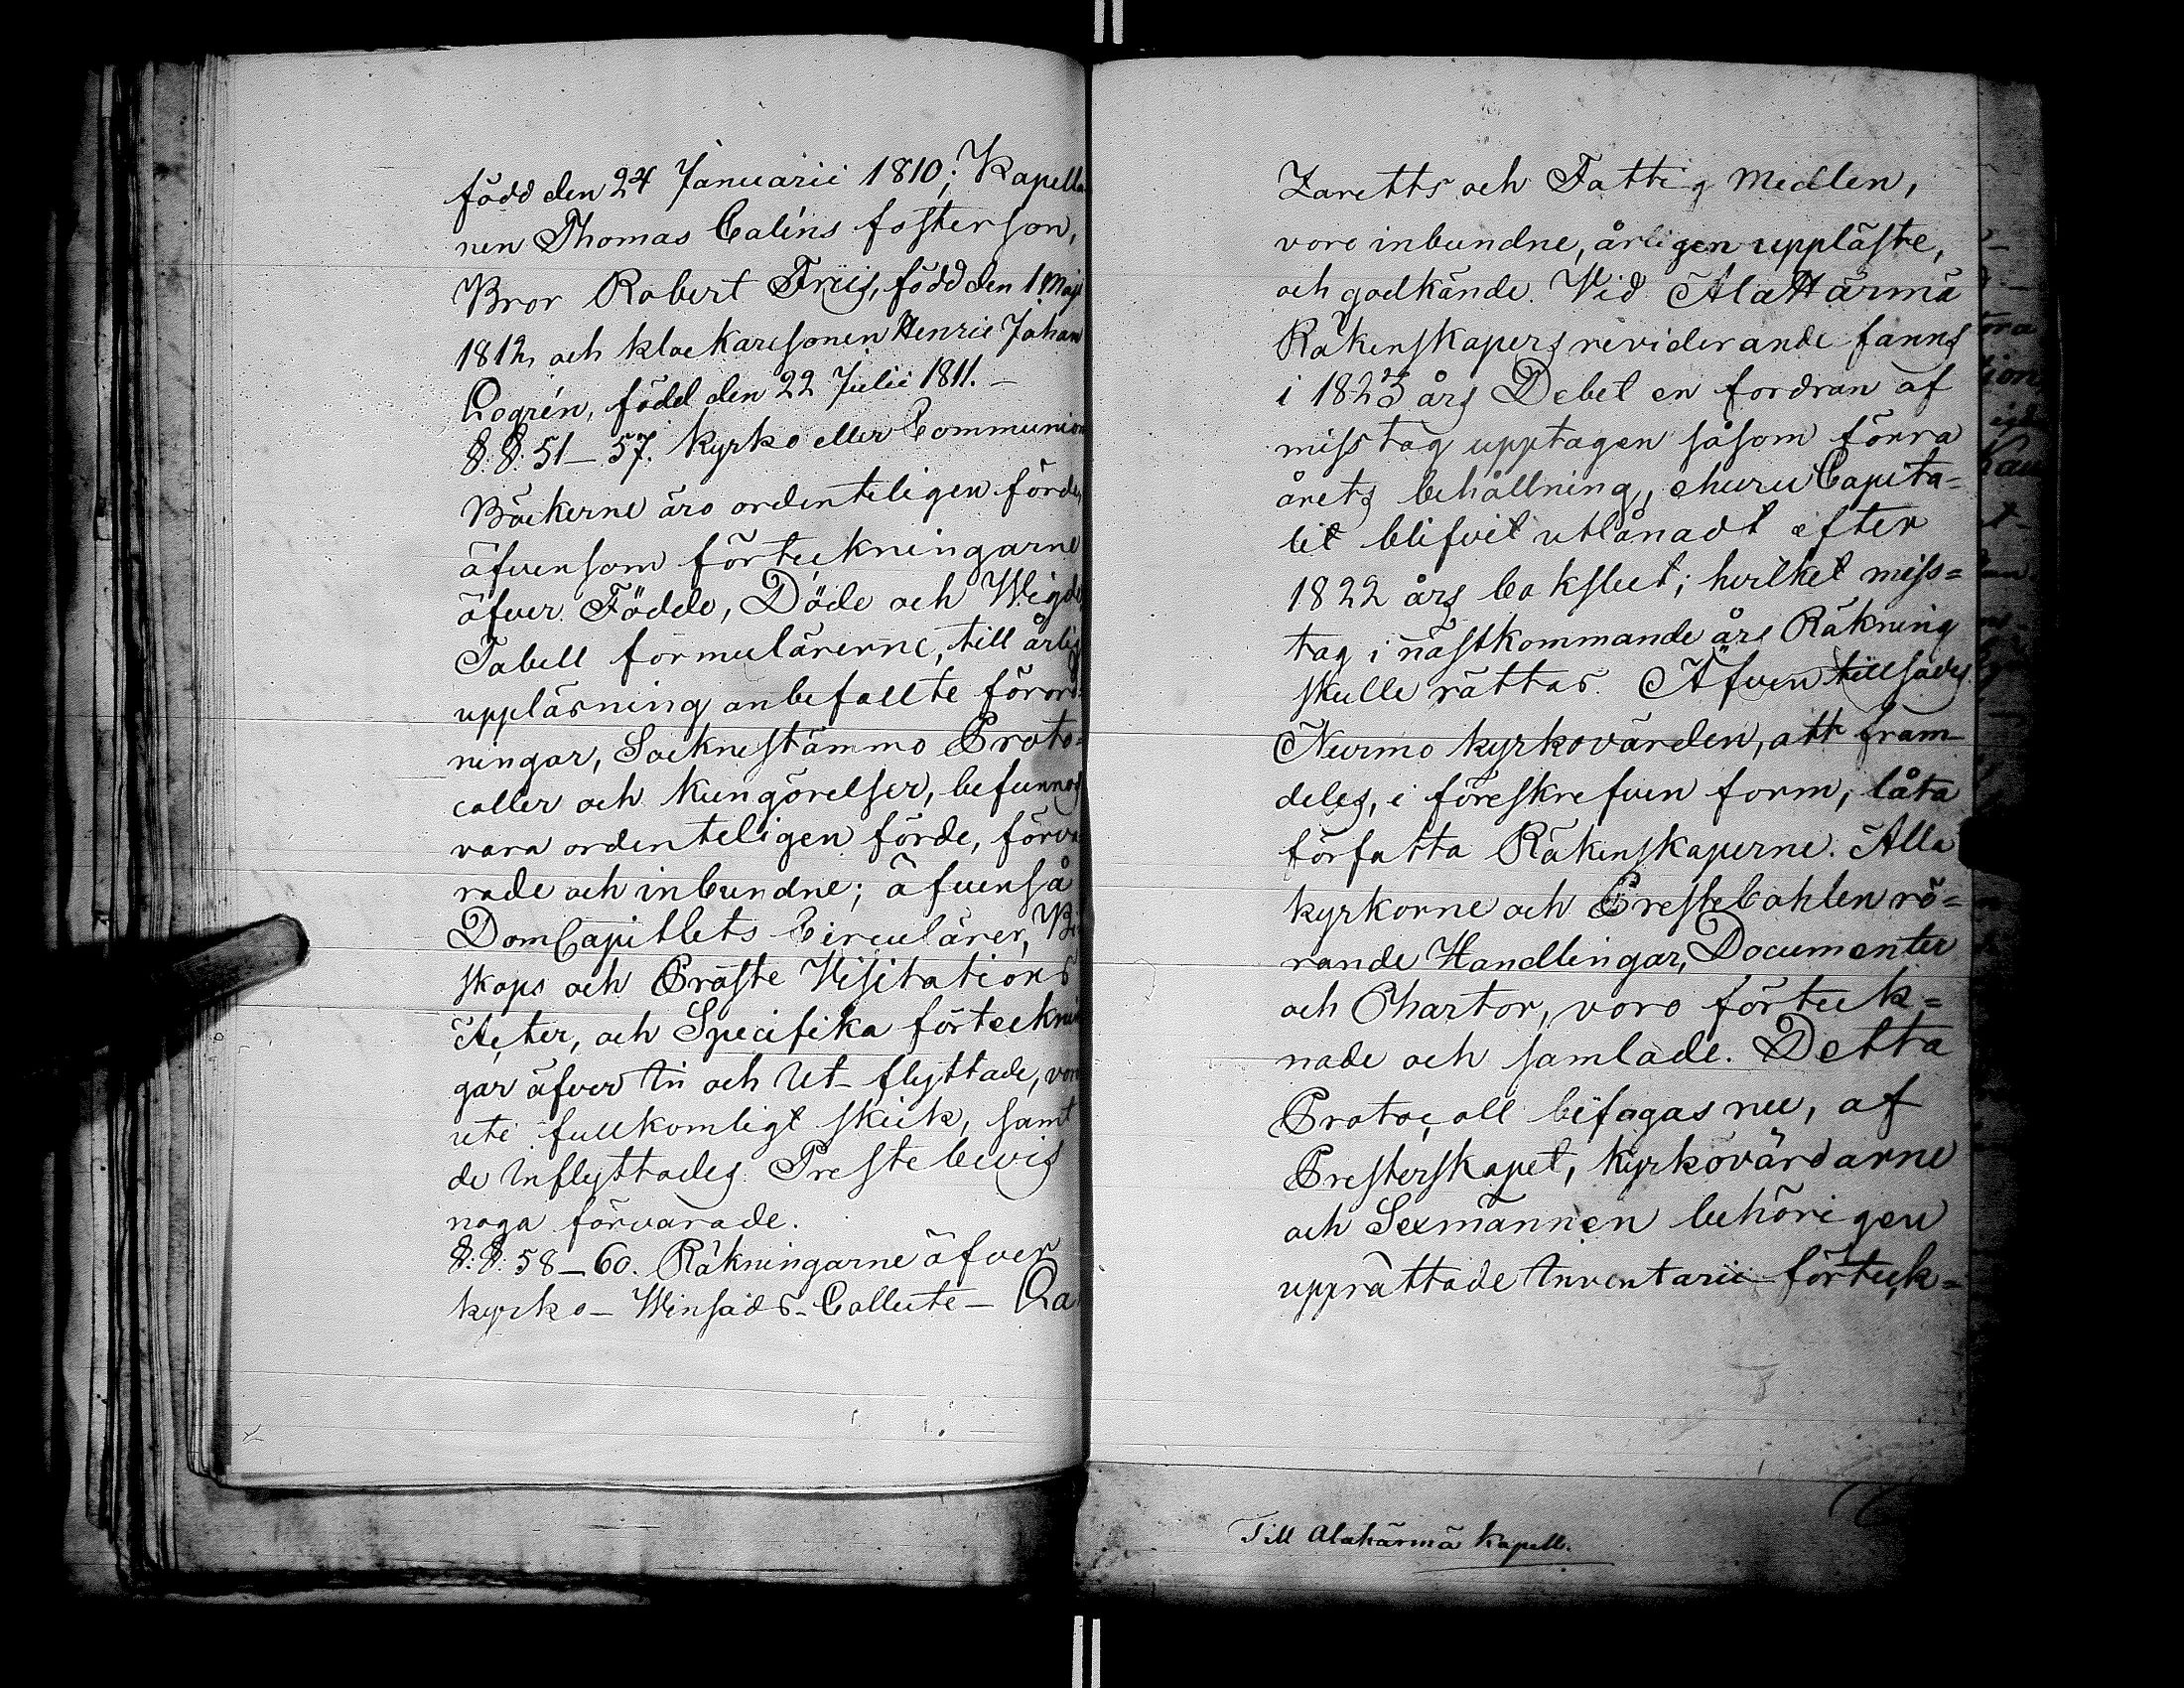 född den 24 Januarii 1810; Kapella
nen Thomas Caléns fosterson,
Bror Robert Friis, född den 1 Maji
1812, och klockaresonen Henric Johan
Logrén, född den 22 Julii 1811. –
§. §. 51 – 57. Kyrko eller Communion
Böckerne äro ordenteligen förde,
äfvensom förteckningarne
öfver Födde, Döde och Wigde,
Tabell formulärerne, till årlig
uppläsning anbefallte förord
ningar, Socknestämmo Proto=
coller och kungörelser, befunnos
vara ordenteligen förde, förva
rade och inbundne; äfvenså
DomCapitlets Circulärer, Bi
skops och Proste Visitations
Acter, och Specifika förteckni
gar öfver In och Ut flyttade, voro
uti fullkomligt skick, samt
de Inflyttades Prestebevis
noga förvarade.
§. §. 58 – 60. Räkningarne öfver
kyrko – Winsäds – Collecte – La
Zaretts och Fattig Medlen,
voro inbundne, årligen uppläste,
och godkände. Vid AlaHärmä
Räkenskapers reviderande fanns
i 1823 års Debet en fordran af
misstag upptagen såsom förra
årets behållning, ehuru Capita=
let blifvit utlånadt efter
1822 års bokslut; hvilket miss=
tag i nästkommande års Räkning
skulle rättas. Äfven tillsades
Nurmo kyrkovärden, att fram=
deles, i föreskrefven form, låta
författa Räkenskaperne. Alla
kyrkorne och Prestebohlen rö=
rande Handlingar, Documenter
och Chartor, voro förteck=
nade och samlade. Detta
Protocoll bifogas nu, af
Presterskapet, kyrkovärdarne
och Sexmännen behörigen
upprättade Inventarii förteck=
Till Alahärmä Kapell.